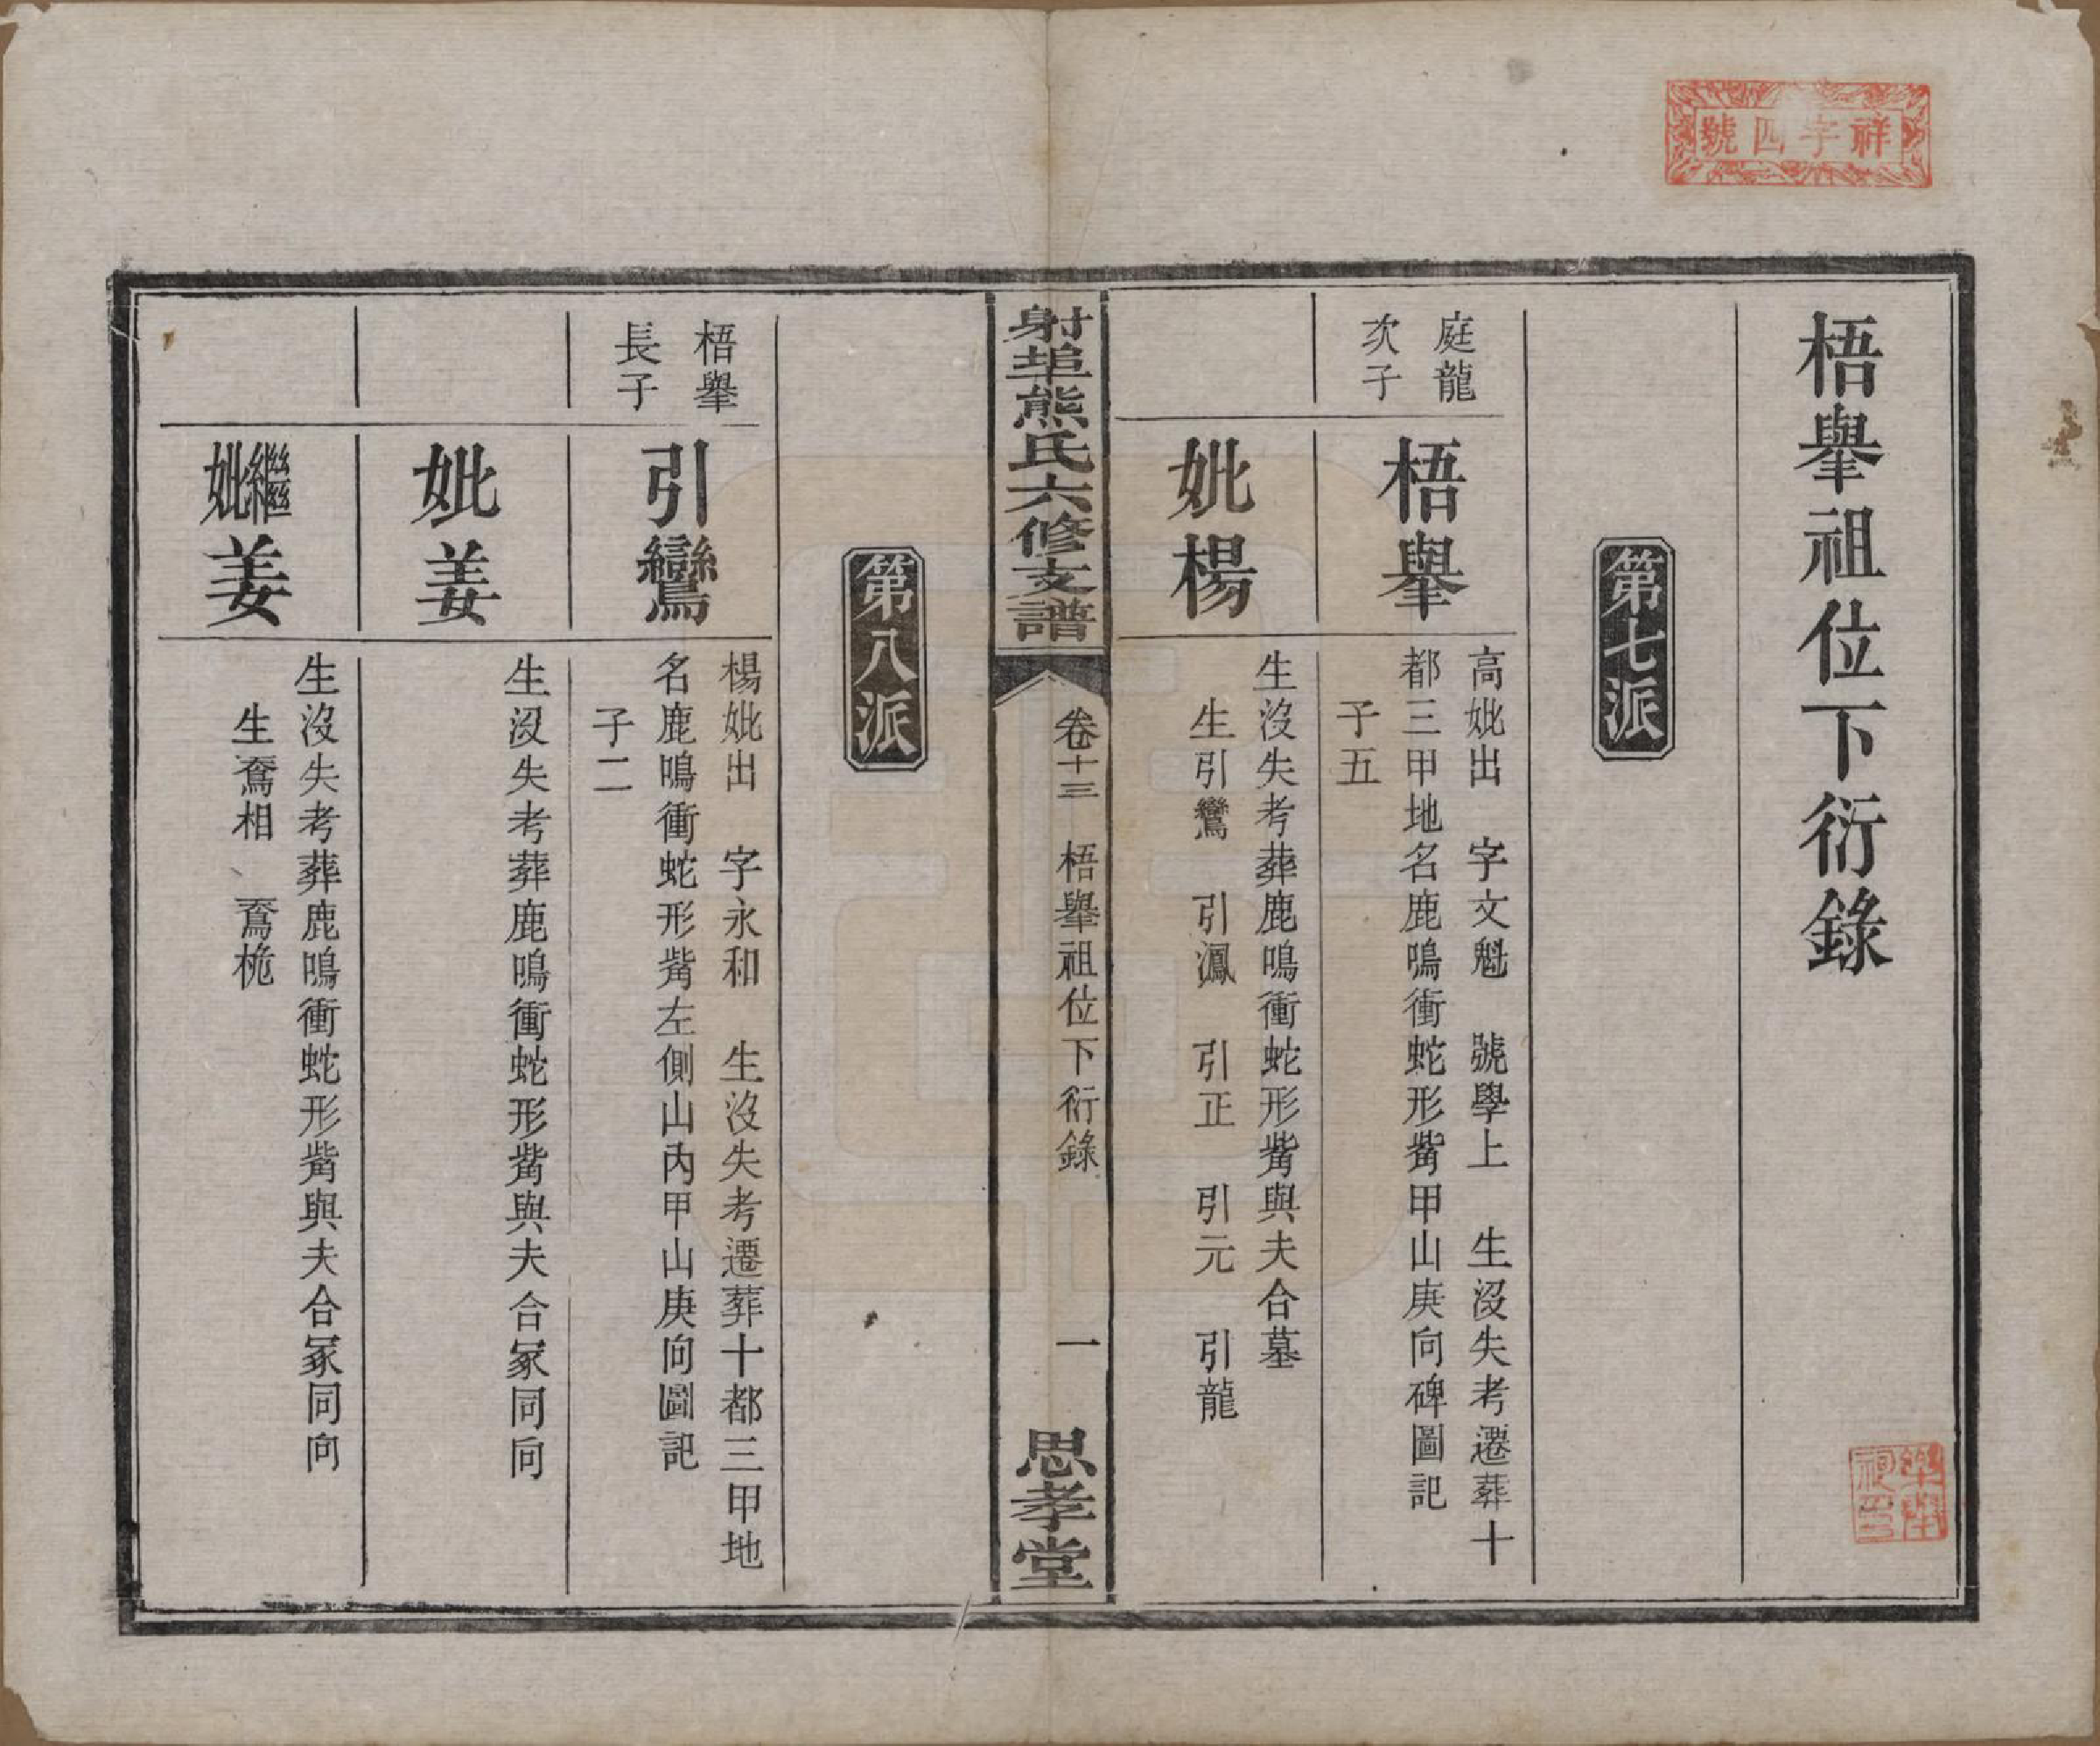 祥字四號
梧舉祖位下衍錄
第七派
庭龍
次子
梧舉
高妣出　字文魁　號學上　生沒失考遷葬十
都三甲地名鹿鳴衝蛇形觜甲山庚向碑圖記
子五
妣楊
生沒失考葬鹿鳴衝蛇形觜與夫合墓
生引鸞　引鳳　引正　引元　引龍
射埠熊氏六修支譜
卷十三　梧舉祖位下衍錄　一
思孝堂
第八派
梧舉
長子
引鸞
楊妣出　字永和　生沒失考遷葬十都三甲地
名鹿鳴衝蛇形觜左側山內甲山庚向圖記
子二
妣姜
生沒失考葬鹿鳴衝蛇形觜與夫合冢同向
繼妣姜
生沒失考葬鹿鳴衝蛇形觜與夫合冢同向
生奮相　奮桅